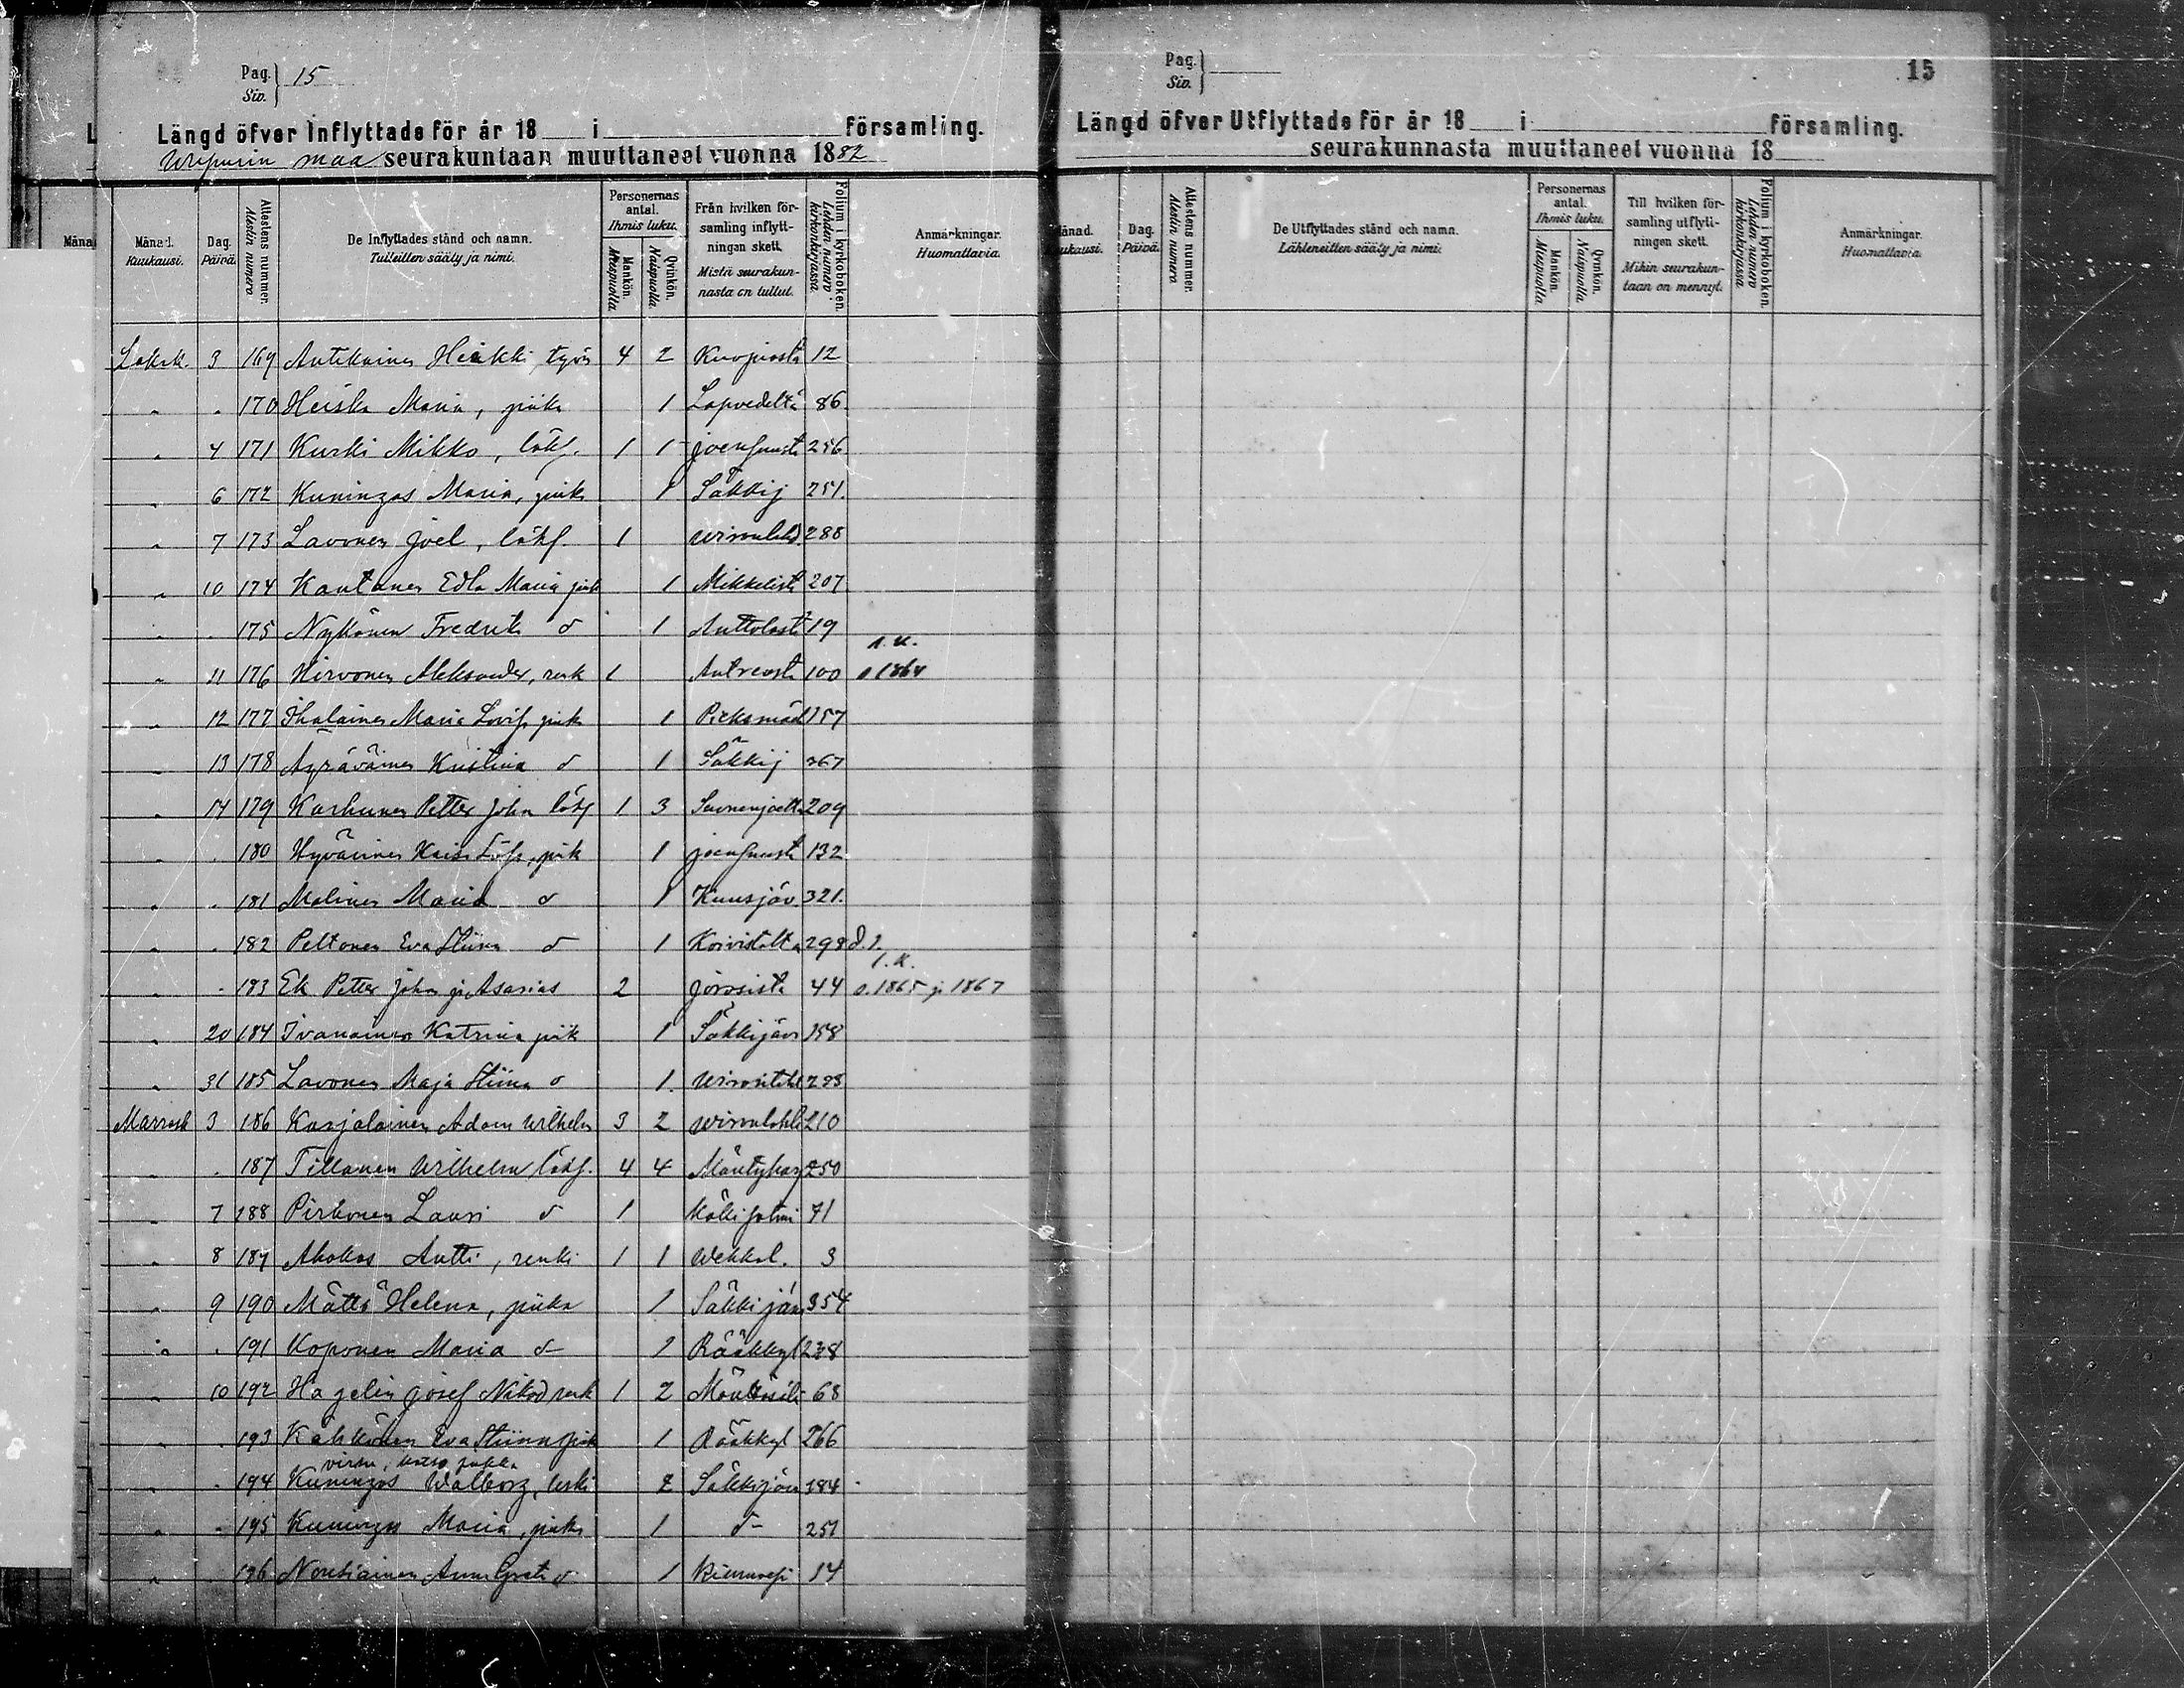 Pag. Siv. } 15
Längd öfver Inflyttade för år 18 i församling.
Wiipurin maa seurakuntaan muuttaneet vuonna 1882
Månad. Kuukausi.
Dag. Päivä.
Attestens nummer. Atestin numero
De Inflyttades stånd och namn. Tulleitten sääty ja nimi.
Personernas antal. Ihmis luku.
Mankön. Miespuolia
Qvinkön. Naispuolia
Från hvilken församling inflyttningen skett. Mistä seurakunnasta on tullut.
Folium i kyrkoboken. Lehden numero kirkonkirjassa
Anmärkningar. Huomattavia.
Lokak. 3 169 Antikainen Heikki, työs 4 2 Kuopiosta 12
" . 170 Heiska Maria, piika 1 Lapvedeltä 86.
" 4 171 Kurki Mikko, lökf. 1 1 Joensuusta 256
" 6 172 Kuningas Maria, piik 1 Säkkij 251.
" 7 173 Lavonen Joel, lökf. 1 288
" 10 174 Kautanen Edla Maria piik 1 Mikkelist 207
" . 175 Nykänen Fredrik d 1 Anttolast 19
" 11 176 Hirvonen Aleksander, renk 1 Antreasta 100 s 1864
" 12 177 Ihalainen Maria Lovis, piik 1 Pieksmäel 157
" 13 178 Äyräväinen Kristina d 1 Säkkij 367
" 14 179 Karhunen Petter Joha lökf 1 3 Suonenjoelta 209
" . 180 Hyvärinen Kaisa, piik 1 Joensuusta 132
" . 181 Malinen Maria d 1 Kuusjär. 321.
" . 182 Peltonen Eva Stiina d 1 Koivistolta 298
" . 183 Ek Petter Johan ja Asarias 2 Joroisista 44 s. 1865 j. 1867
" 20 184 Ivanainen Katrina piik 1 Säkkijärv 158
" 31 185 Lavonen Maja Stiina d 1.
Marrask 3 186 Karjalainen Adam Wilhelm 3 2 210
" . 187 Tillanen Wilhelm lökf. 4 4 Mäntyharj 250
" 7 188 Pirhonen Lauri d 1 Käkisalmi 71
" 8 189 Ahokas Antti, renki 1 1 Wehkal. 3
" 9 190 Mättö Helena, piika 1 Säkkijärv 354
" . 191 Koponen Maria d 1 Rääkkyl 238
" 10 192 Hagelin Josef Nikod renk 1 2 68
" . 193 Kähkönen Eva Stiina piik 1 Rääkkyl 266
" . 194 Kuningas Walborg, leski 2 Säkkijärv 184
" . 195 Kuningas Maria, piika 1 d- 251
" . 196 Noutiainen Anna Greta d 1 Kiuruvesi 14
Pag. Siv. }
15
Längd öfver Utflyttade för år 18 i församling.
seurakunnasta muuttaneet vuonna 18
Dag. Päivä.
Attestens nummer. Atestin numero
De Utflyttades stånd och namn. Lähteneitten sääty ja nimi.
Personernas antal. Ihmis luku.
Mankön. Miespuolia
Qvinkön. Naispuolia
Till hvilken församling utflyttningen skett. Mihin seurakuntaan on mennyt.
Folium i kyrkoboken. Lehden numero kirkonkirjassa
Anmärkningar. Huomattavia.